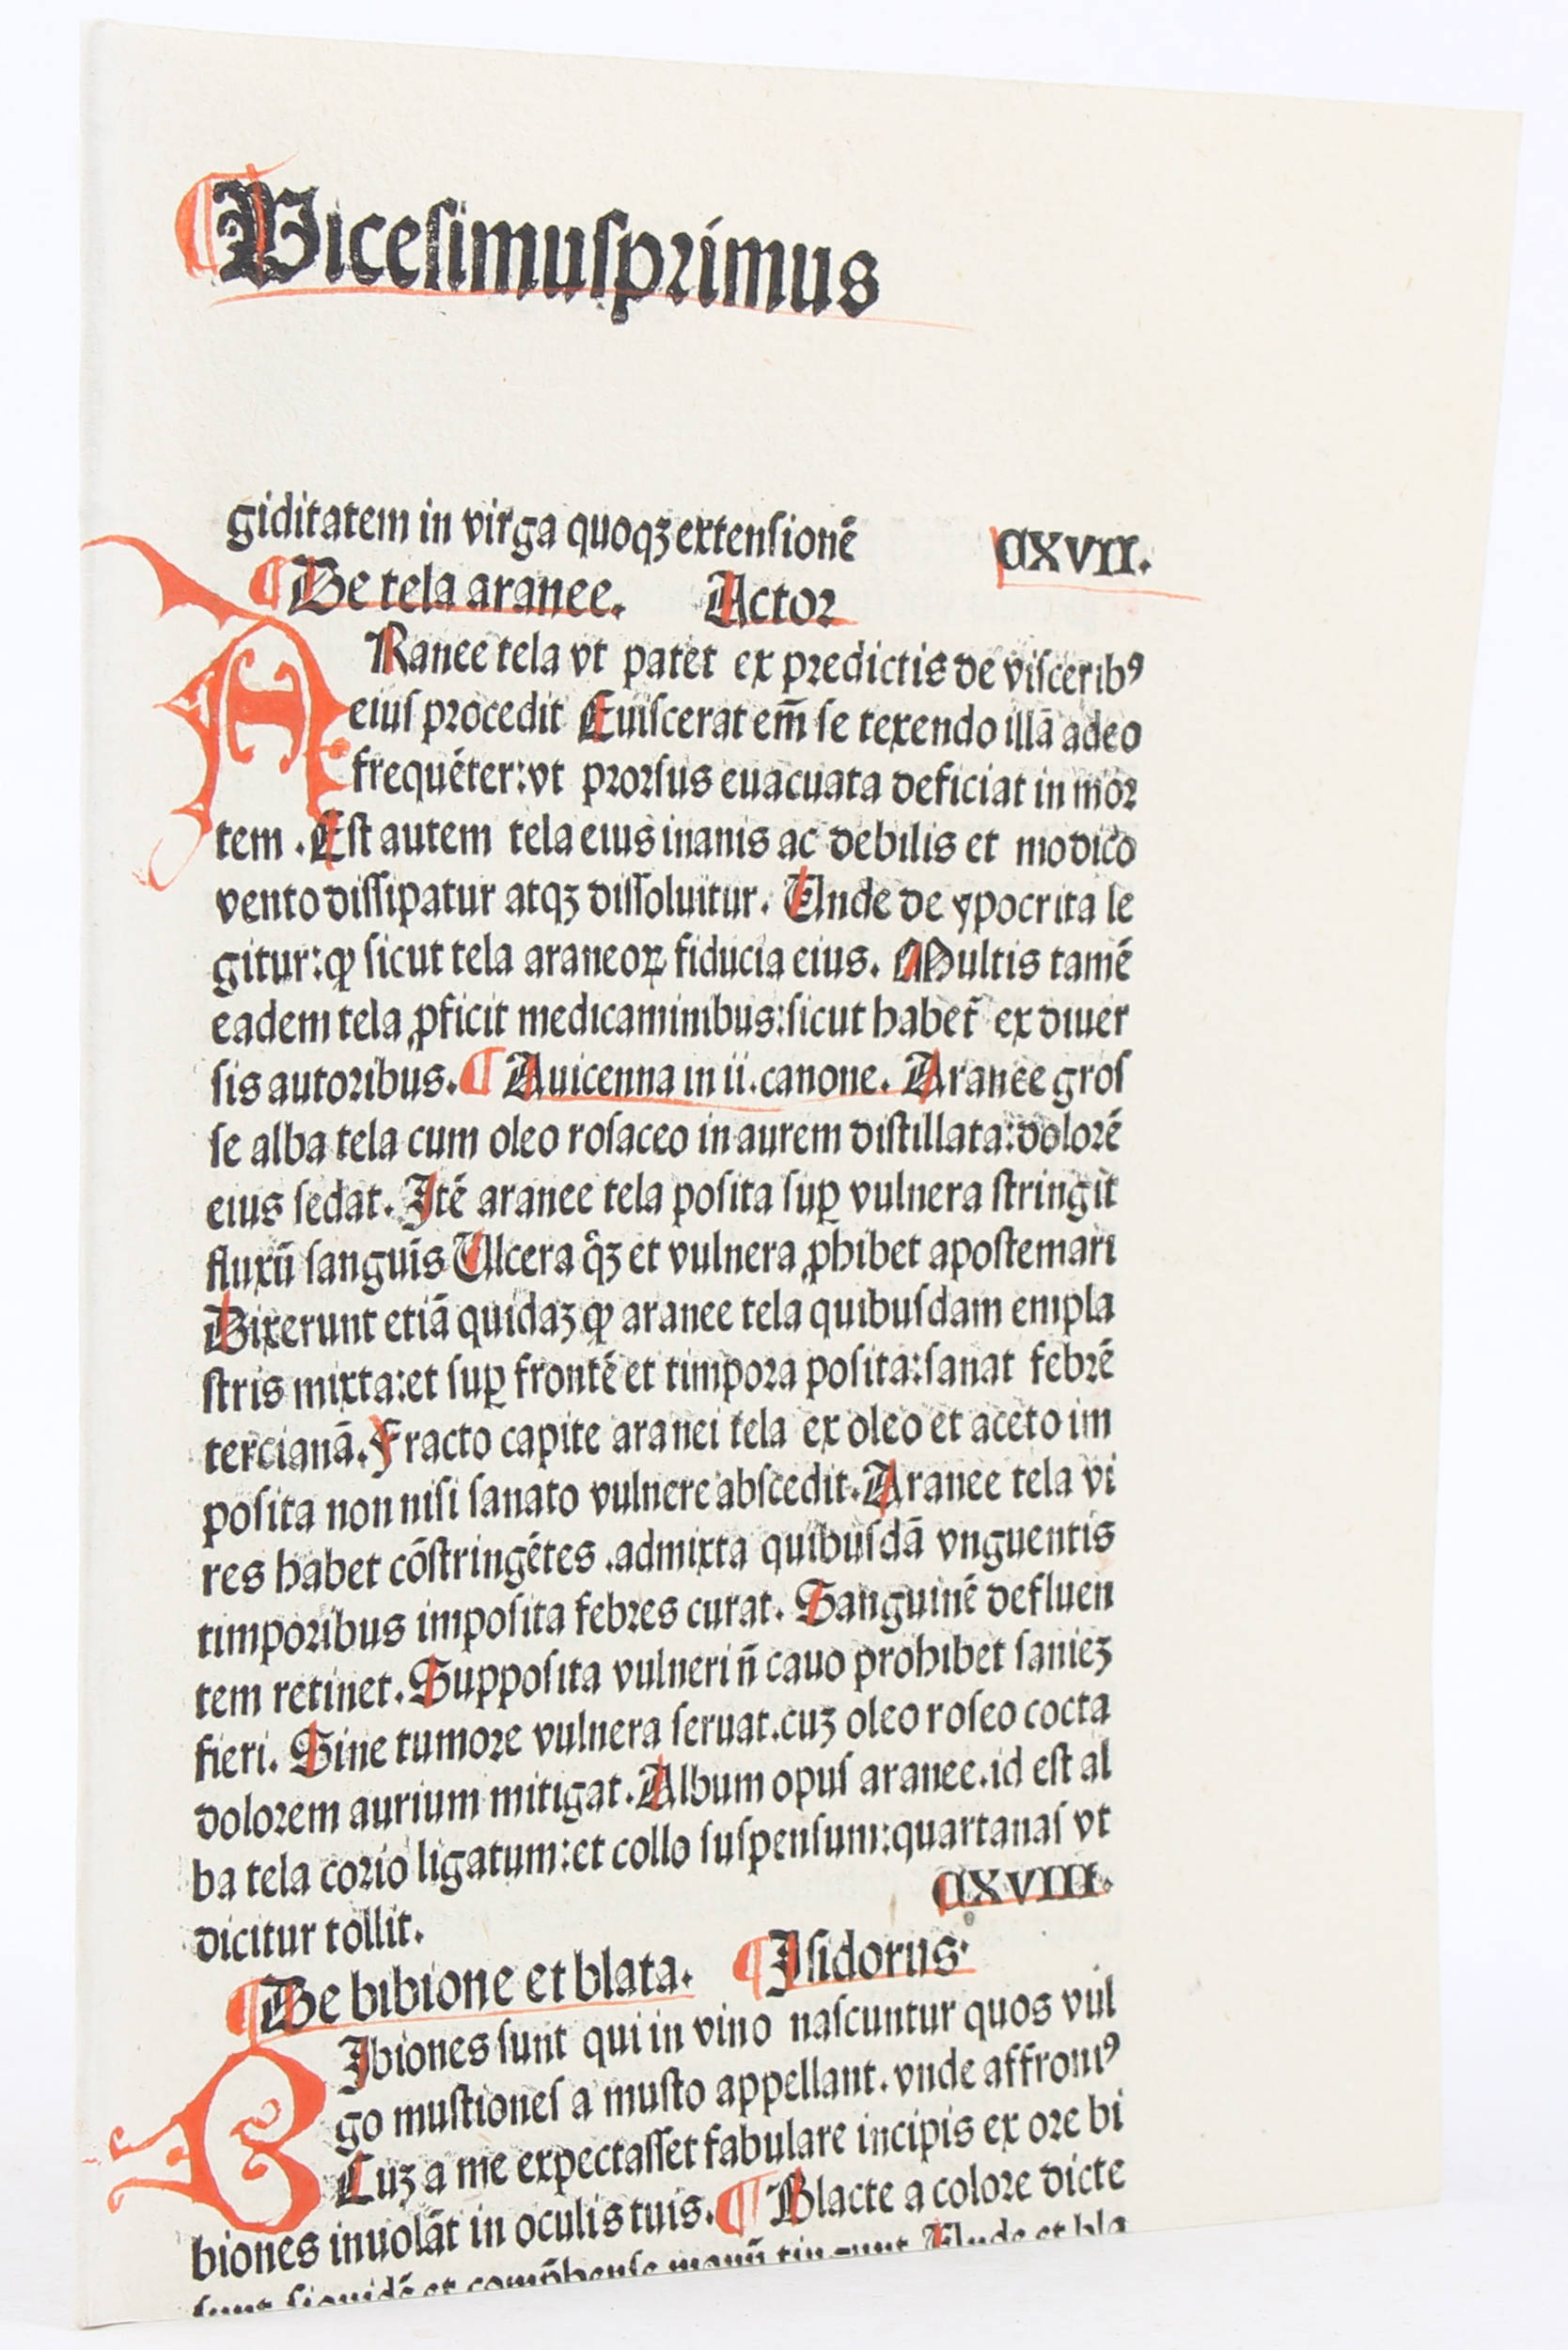 Vicesimusprimus
giditatem in virga quoqꝫ extensionē
CXVII.
¶ De tela aranee. Actor
ARanee tela vt patet ex predictis de visceribꝰ
eius procedit Euiscerat em̄ se texendo illā adeo
frequēter:vt prorsus euacuata deficiat in mor
tem. Est autem tela eius inanis ac debilis et modico
vento dissipatur atqꝫ dissoluitur. Unde de ypocrita le
gitur:ꝙ sicut tela araneoꝝ fiducia eius. Multis tamē
eadem tela ꝓficit medicaminibus:sicut habet̄ ex diuer
sis autoribus. ¶ Auicenna in ii.canone. Aranee gros
se alba tela cum oleo rosaceo in aurem distillata:dolorē
eius sedat. Itē aranee tela posita suꝑ vulnera stringit
fluxū sanguīs Ulcera qͦꝫ et vulnera ꝓhibet apostemari
Dixerunt etiā quidaꝫ ꝙ aranee tela quibusdam empla
stris mixta:et suꝑ frontē et timpora posita:sanat febrē
tercianā. Fracto capite aranei tela ex oleo et aceto im
posita non nisi sanato vulnere abscedit. Aranee tela vi
res habet cōstringētes .admixta quibusdā vnguentis
timporibus imposita febres curat. Sanguinē defluen
tem retinet. Supposita vulneri n̄ cauo prohibet sanieꝫ
fieri. Sine tumore vulnera seruat.cuꝫ oleo roseo cocta
dolorem aurium mitigat. Album opus aranee.id est al
ba tela corio ligatum:et collo suspensum:quartanas vt
dicitur tollit.
CXVIII.
¶ De bibione et blata. ¶ Isidorus
BIbiones sunt qui in vino nascuntur quos vul
go mustiones a musto appellant. vnde affroniꝰ
Cuꝫ a me expectasset fabulare incipis ex ore bi
biones inuolāt in oculis tuis. ¶ Blacte a colore dicte
sunt siquidē et comp̄hense manū tingunt Unde et bla